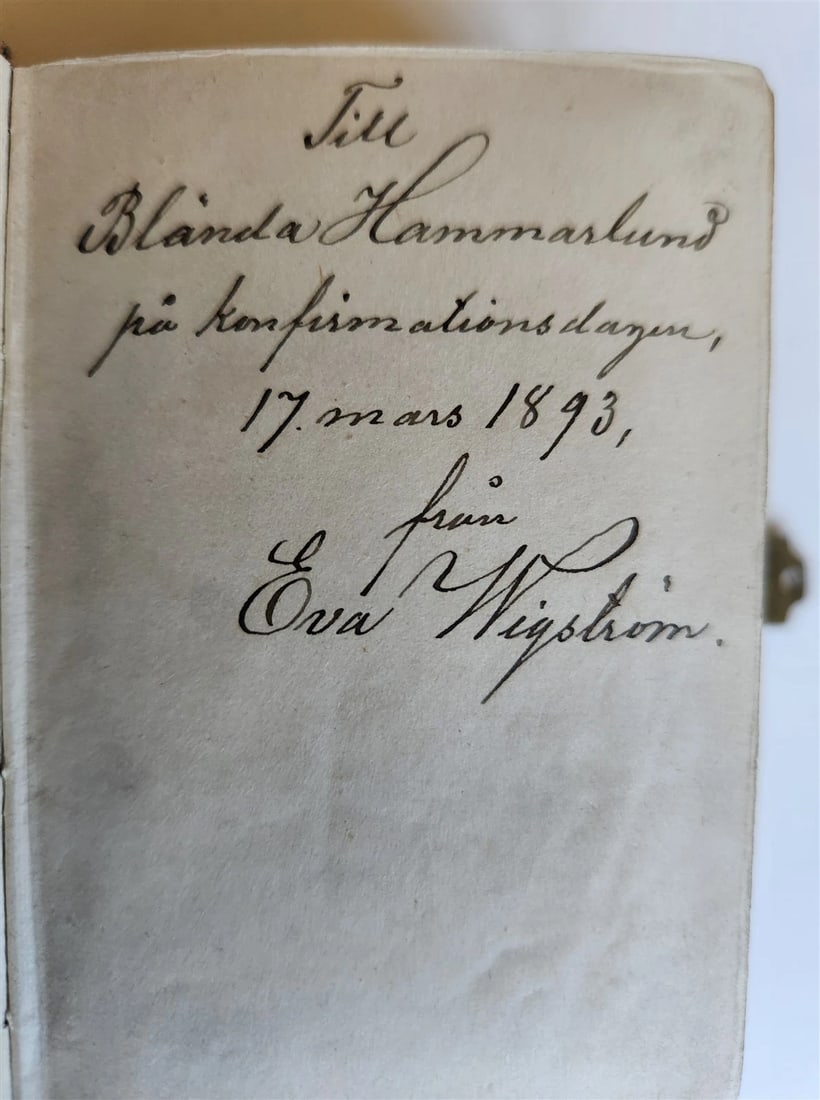 Till
Blända Hammarlund
på konfirmationsdagen,
17. mars 1893,
från
Eva Wigström.